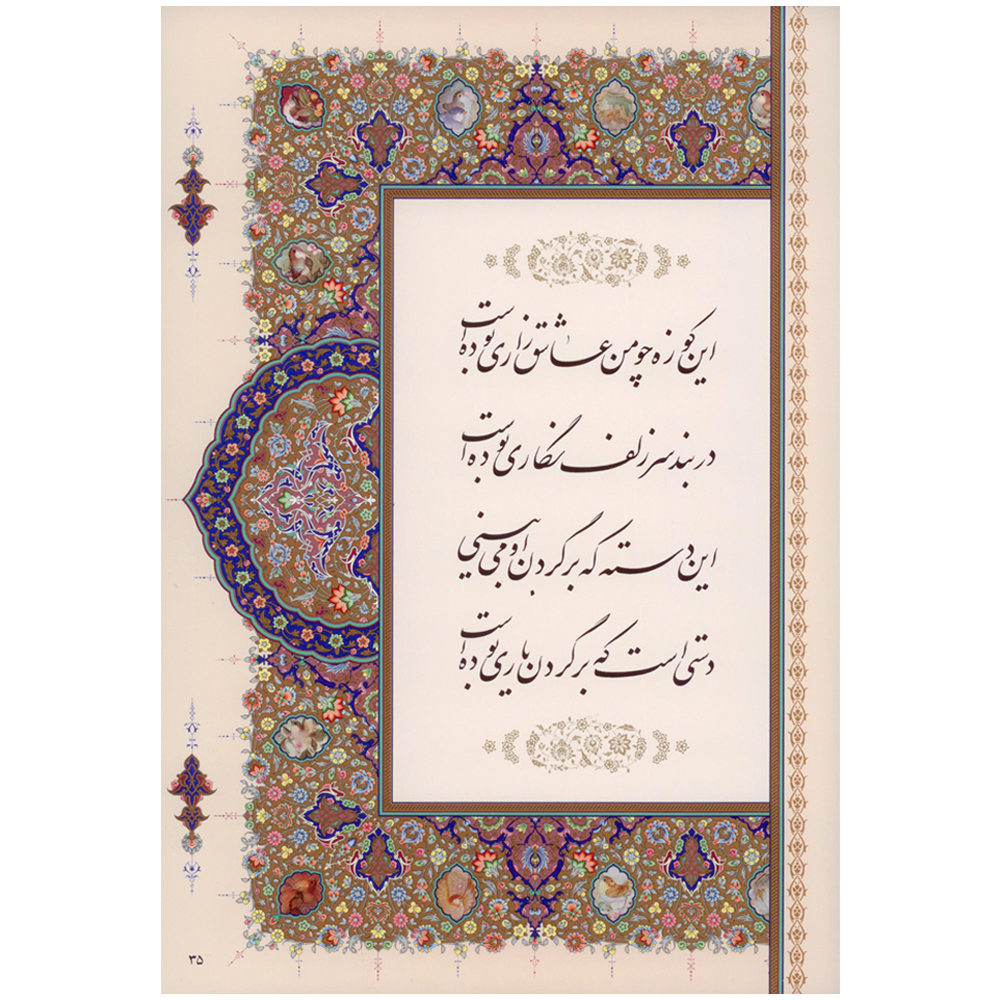 این کوزه چو من عاشق زاری بوده است
در بند سر زلف نگاری بوده است
این دسته که بر گردن او می بینی
دستی است که بر گردن یاری بوده است
۳۵